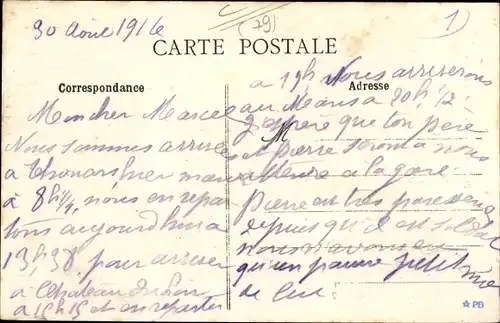 30 Août 1916
(79)
1)
CARTE POSTALE
Correspondance
Adresse
Mon cher Marcel
Nous sommes arrivés
à Thouars hier
à 8h 1/4, nous en repar
tons aujourd'hui à
13h,38 pour arriver
à Château du Loir
à 15h15 et en repartir
à 19h Nous arriverons
au Mans à 20h 1/2
J'espère que ton père
et pierre seront à nous
attendre à la gare.
Pierre est très
depuis qu'il est soldat
nous n'avons eu
qu'un pauvre petit mot
de lui.
M
PB